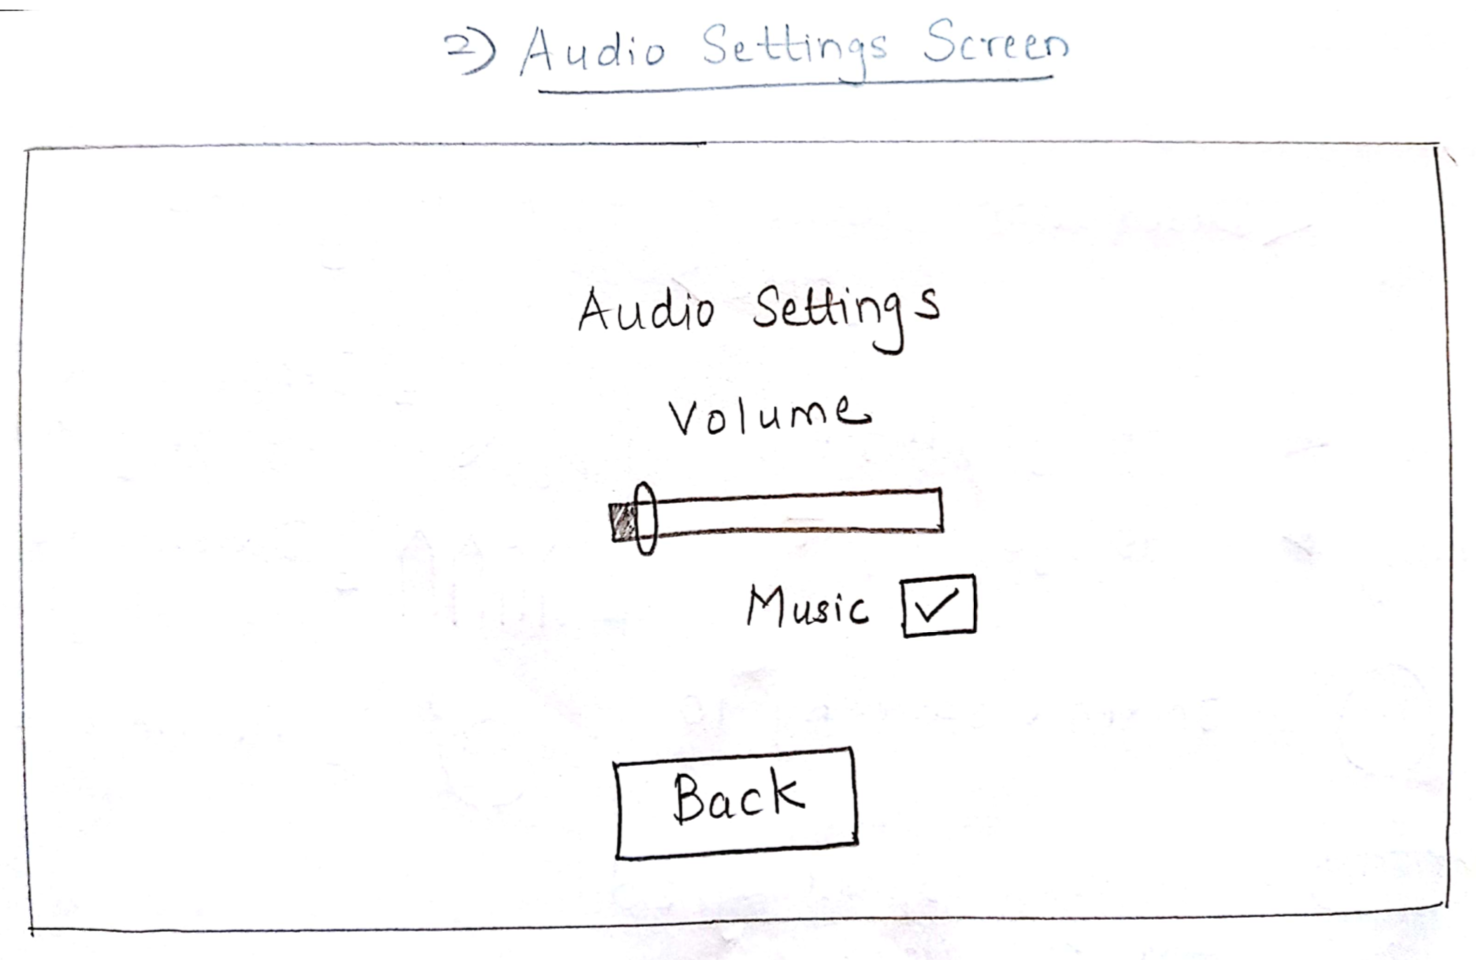 2) Audio Settings Screen
Audio Settings
Volume
Music
Back